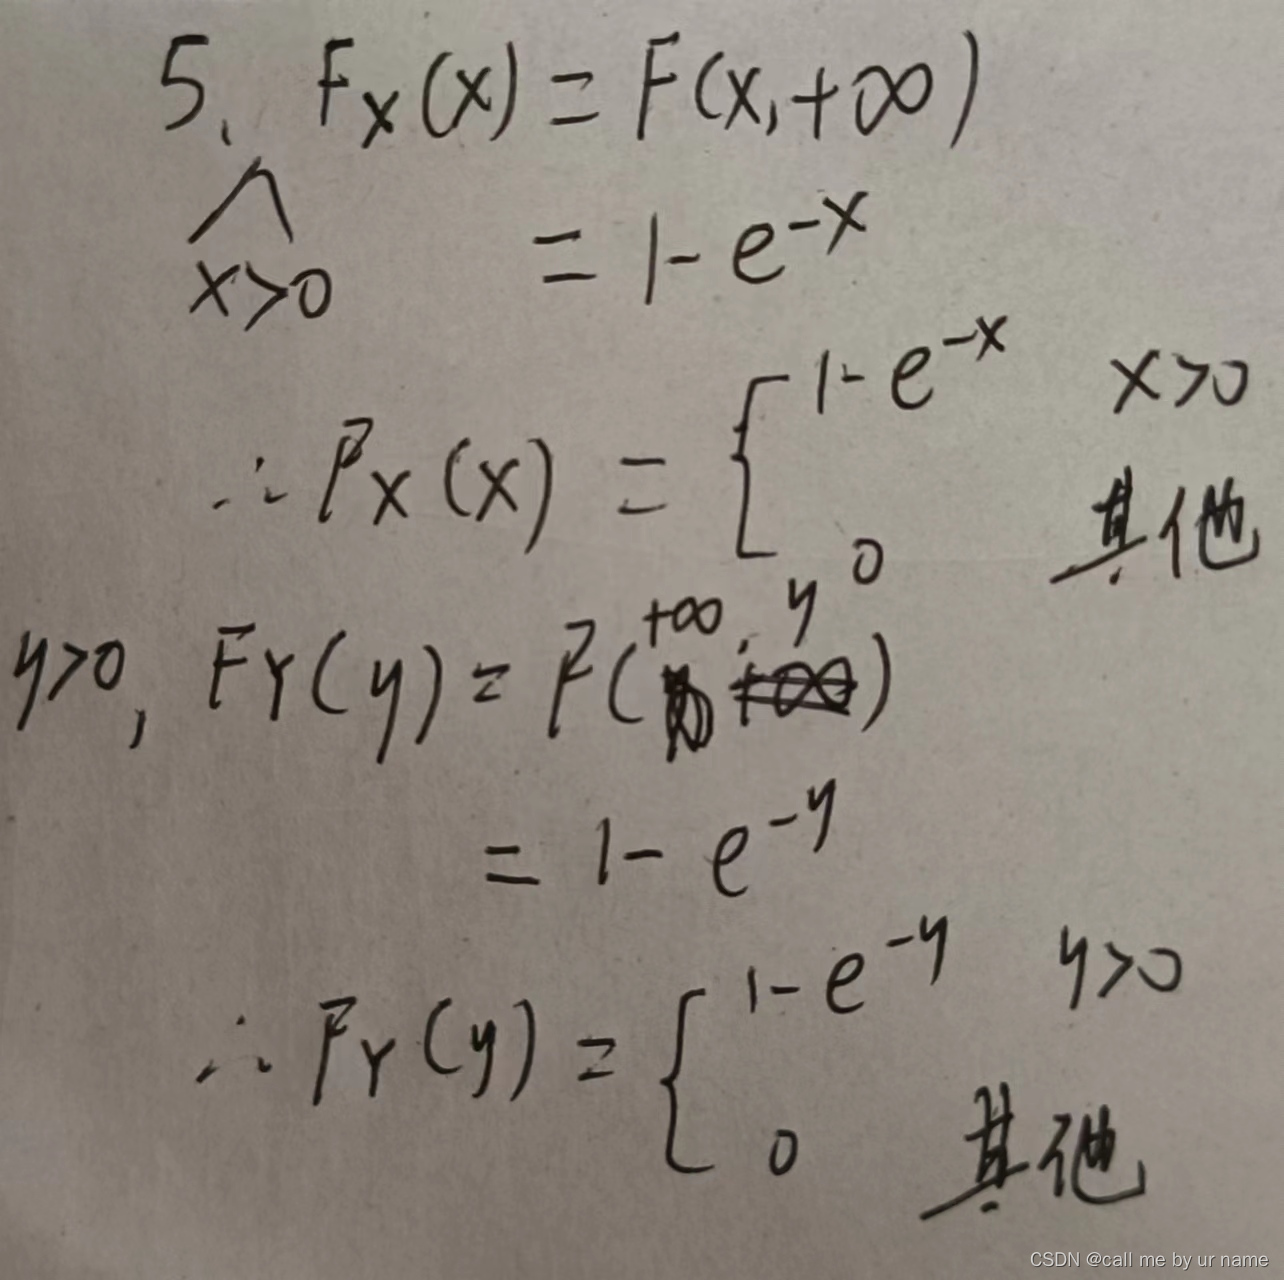 5. F_X(x) = F(x, +∞)
x>0 = 1 - e^{-x}
∴ F_X(x) = { 1 - e^{-x} x>0
0 其他
y>0, F_Y(y) = F(+∞, y)
= 1 - e^{-y}
∴ F_Y(y) = { 1 - e^{-y} y>0
0 其他
CSDN @call me by ur name